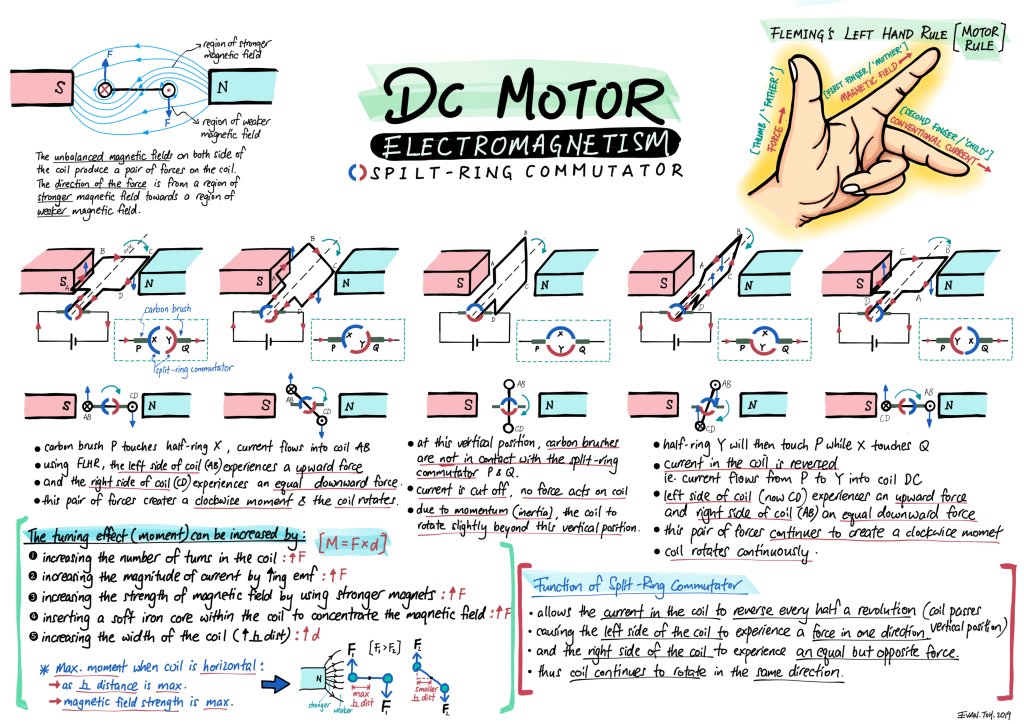 DC MOTOR
ELECTROMAGNETISM
SPILT-RING COMMUTATOR
FLEMING'S LEFT HAND RULE [MOTOR RULE]
[THUMB/'FATHER']
FORCE
[FIRST FINGER/'MOTHER']
MAGNETIC FIELD
[SECOND FINGER/'CHILD']
CONVENTIONAL CURRENT
region of stronger
magnetic field
S
F
N
F
region of weaker
magnetic field
The unbalanced magnetic fields on both side of
the coil produce a pair of forces on the coil.
The direction of the force is from a region of
stronger magnetic field towards a region of
weaker magnetic field.
S A B C D N
carbon brush
P X Y Q
split-ring commutator
S B D N
P X Y Q
S A B C D N
P X Y Q
S B D N
P X Y Q
S C B A D N
P Y X Q
S AB CD N
S AB CD N
S AB CD N
S AB CD N
S CD AB N
• carbon brush P touches half-ring X, current flows into coil AB
• using FLHR, the left side of coil (AB) experiences a upward force
• and the right side of coil (CD) experiences an equal downward force.
• this pair of forces creates a clockwise moment & the coil rotates.
• at this vertical position, carbon brushes
are not in contact with the split-ring
commutator P & Q.
• current is cut off, no force acts on coil
• due to momentum (inertia), the coil to
rotate slightly beyond this vertical position.
• half-ring Y will then touch P while X touches Q
• current in the coil is reversed
ie. current flows from P to Y into coil DC
• left side of coil (now CD) experiences an upward force
and right side of coil (AB) an equal downward force
• this pair of forces continues to create a clockwise momet
• coil rotates continuously.
The turning effect (moment) can be increased by:
[M = F x d]
① increasing the number of turns in the coil : ↑F
② increasing the magnitude of current by ↑ing emf : ↑F
③ increasing the strength of magnetic field by using stronger magnets : ↑F
④ inserting a soft iron core within the coil to concentrate the magnetic field : ↑F
⑤ increasing the width of the coil (↑ h dist) : ↑d
* Max. moment when coil is horizontal :
→ as h distance is max.
→ magnetic field strength is max.
N
stronger weaker
F₁
[F₁>F₂]
max
h dist
F₁
F₂
smaller
h dist
F₂
Function of Split-Ring Commutator
• allows the current in the coil to reverse every half a revolution (coil passes
vertical position)
• causing the left side of the coil to experience a force in one direction
• and the right side of the coil to experience an equal but opposite force.
• thus coil continues to rotate in the same direction.
EVAN.TOH.2019